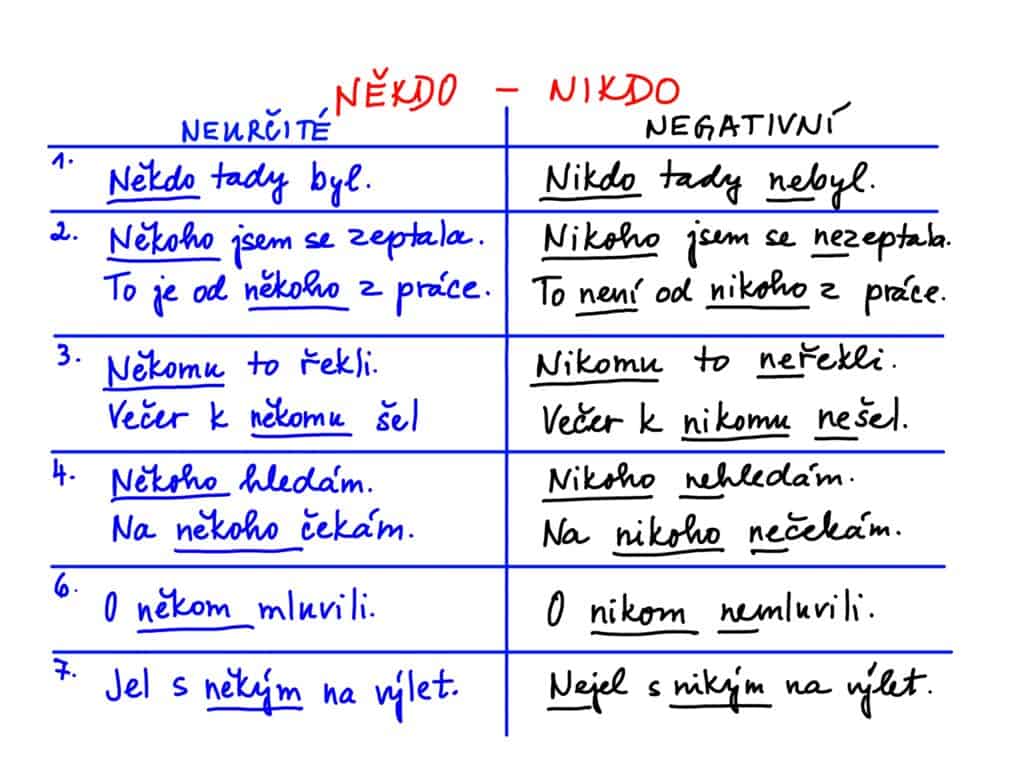 NĚKDO – NIKDO
NEURČITÉ NEGATIVNÍ
1. Někdo tady byl. Nikdo tady nebyl.
2. Někoho jsem se zeptala. Nikoho jsem se nezeptala.
To je od někoho z práce. To není od nikoho z práce.
3. Někomu to řekli. Nikomu to neřekli.
Večer k někomu šel Večer k nikomu nešel.
4. Někoho hledám. Nikoho nehledám.
Na někoho čekám. Na nikoho nečekám.
6. O někom mluvili. O nikom nemluvili.
7. Jel s někým na výlet. Nejel s nikým na výlet.